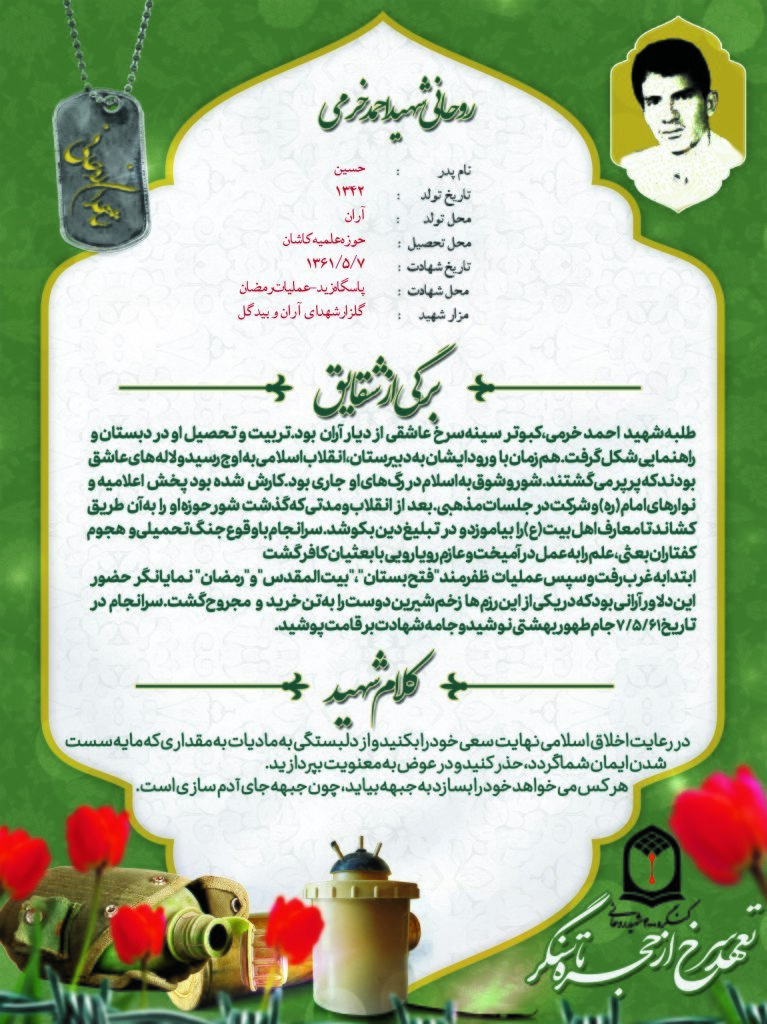 روحانی شهید احمد خرمی
نام پدر : حسین
تاریخ تولد : ۱۳۴۲
محل تولد : آران
محل تحصیل : حوزه علمیه کاشان
تاریخ شهادت : ۱۳۶۱/۵/۷
محل شهادت : پاسگاه زید-عملیات رمضان
مزار شهید : گلزار شهدای آران و بیدگل
برگی از شقایق
طلبه شهید احمد خرمی، کبوتر سینه سرخ عاشقی از دیار آران بود. تربیت و تحصیل او در دبستان و
راهنمایی شکل گرفت. هم زمان با ورود ایشان به دبیرستان، انقلاب اسلامی به اوج رسید و لاله های عاشق
بودند که پرپر می گشتند. شور و شوق به اسلام در رگ های او جاری بود. کارش شده بود پخش اعلامیه و
نوارهای امام (ره) و شرکت در جلسات مذهبی. بعد از انقلاب و مدتی که گذشت شور حوزه او را به آن طریق
کشاند تا معارف اهل بیت (ع) را بیاموزد و در تبلیغ دین بکوشد. سرانجام با وقوع جنگ تحمیلی و هجوم
کفتاران بعثی، علم را به عمل در آمیخت و عازم رویارویی با بعثیان کافر گشت
ابتدا به غرب رفت و سپس عملیات ظفرمند "فتح بستان"، "بیت المقدس" و "رمضان" نمایانگر حضور
این دلاور آرانی بود که در یکی از این رزم ها زخم شیرین دوست را به تن خرید و مجروح گشت. سرانجام در
تاریخ ۷/۵/۶۱ جام طهور بهشتی نوشید و جامه شهادت بر قامت پوشید.
کلام شهید
در رعایت اخلاق اسلامی نهایت سعی خود را بکنید و از دلبستگی به مادیات به مقداری که مایه سست
شدن ایمان شما گردد، حذر کنید و در عوض به معنویت بپردازید.
هر کس می خواهد خود را بسازد به جبهه بیاید، چون جبهه جای آدم سازی است.
تعهد سرخ از حجره تا سنگر